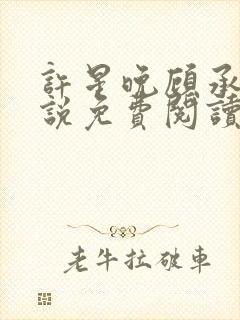 許星晚顧承
說免費閱讀
老牛拉破車